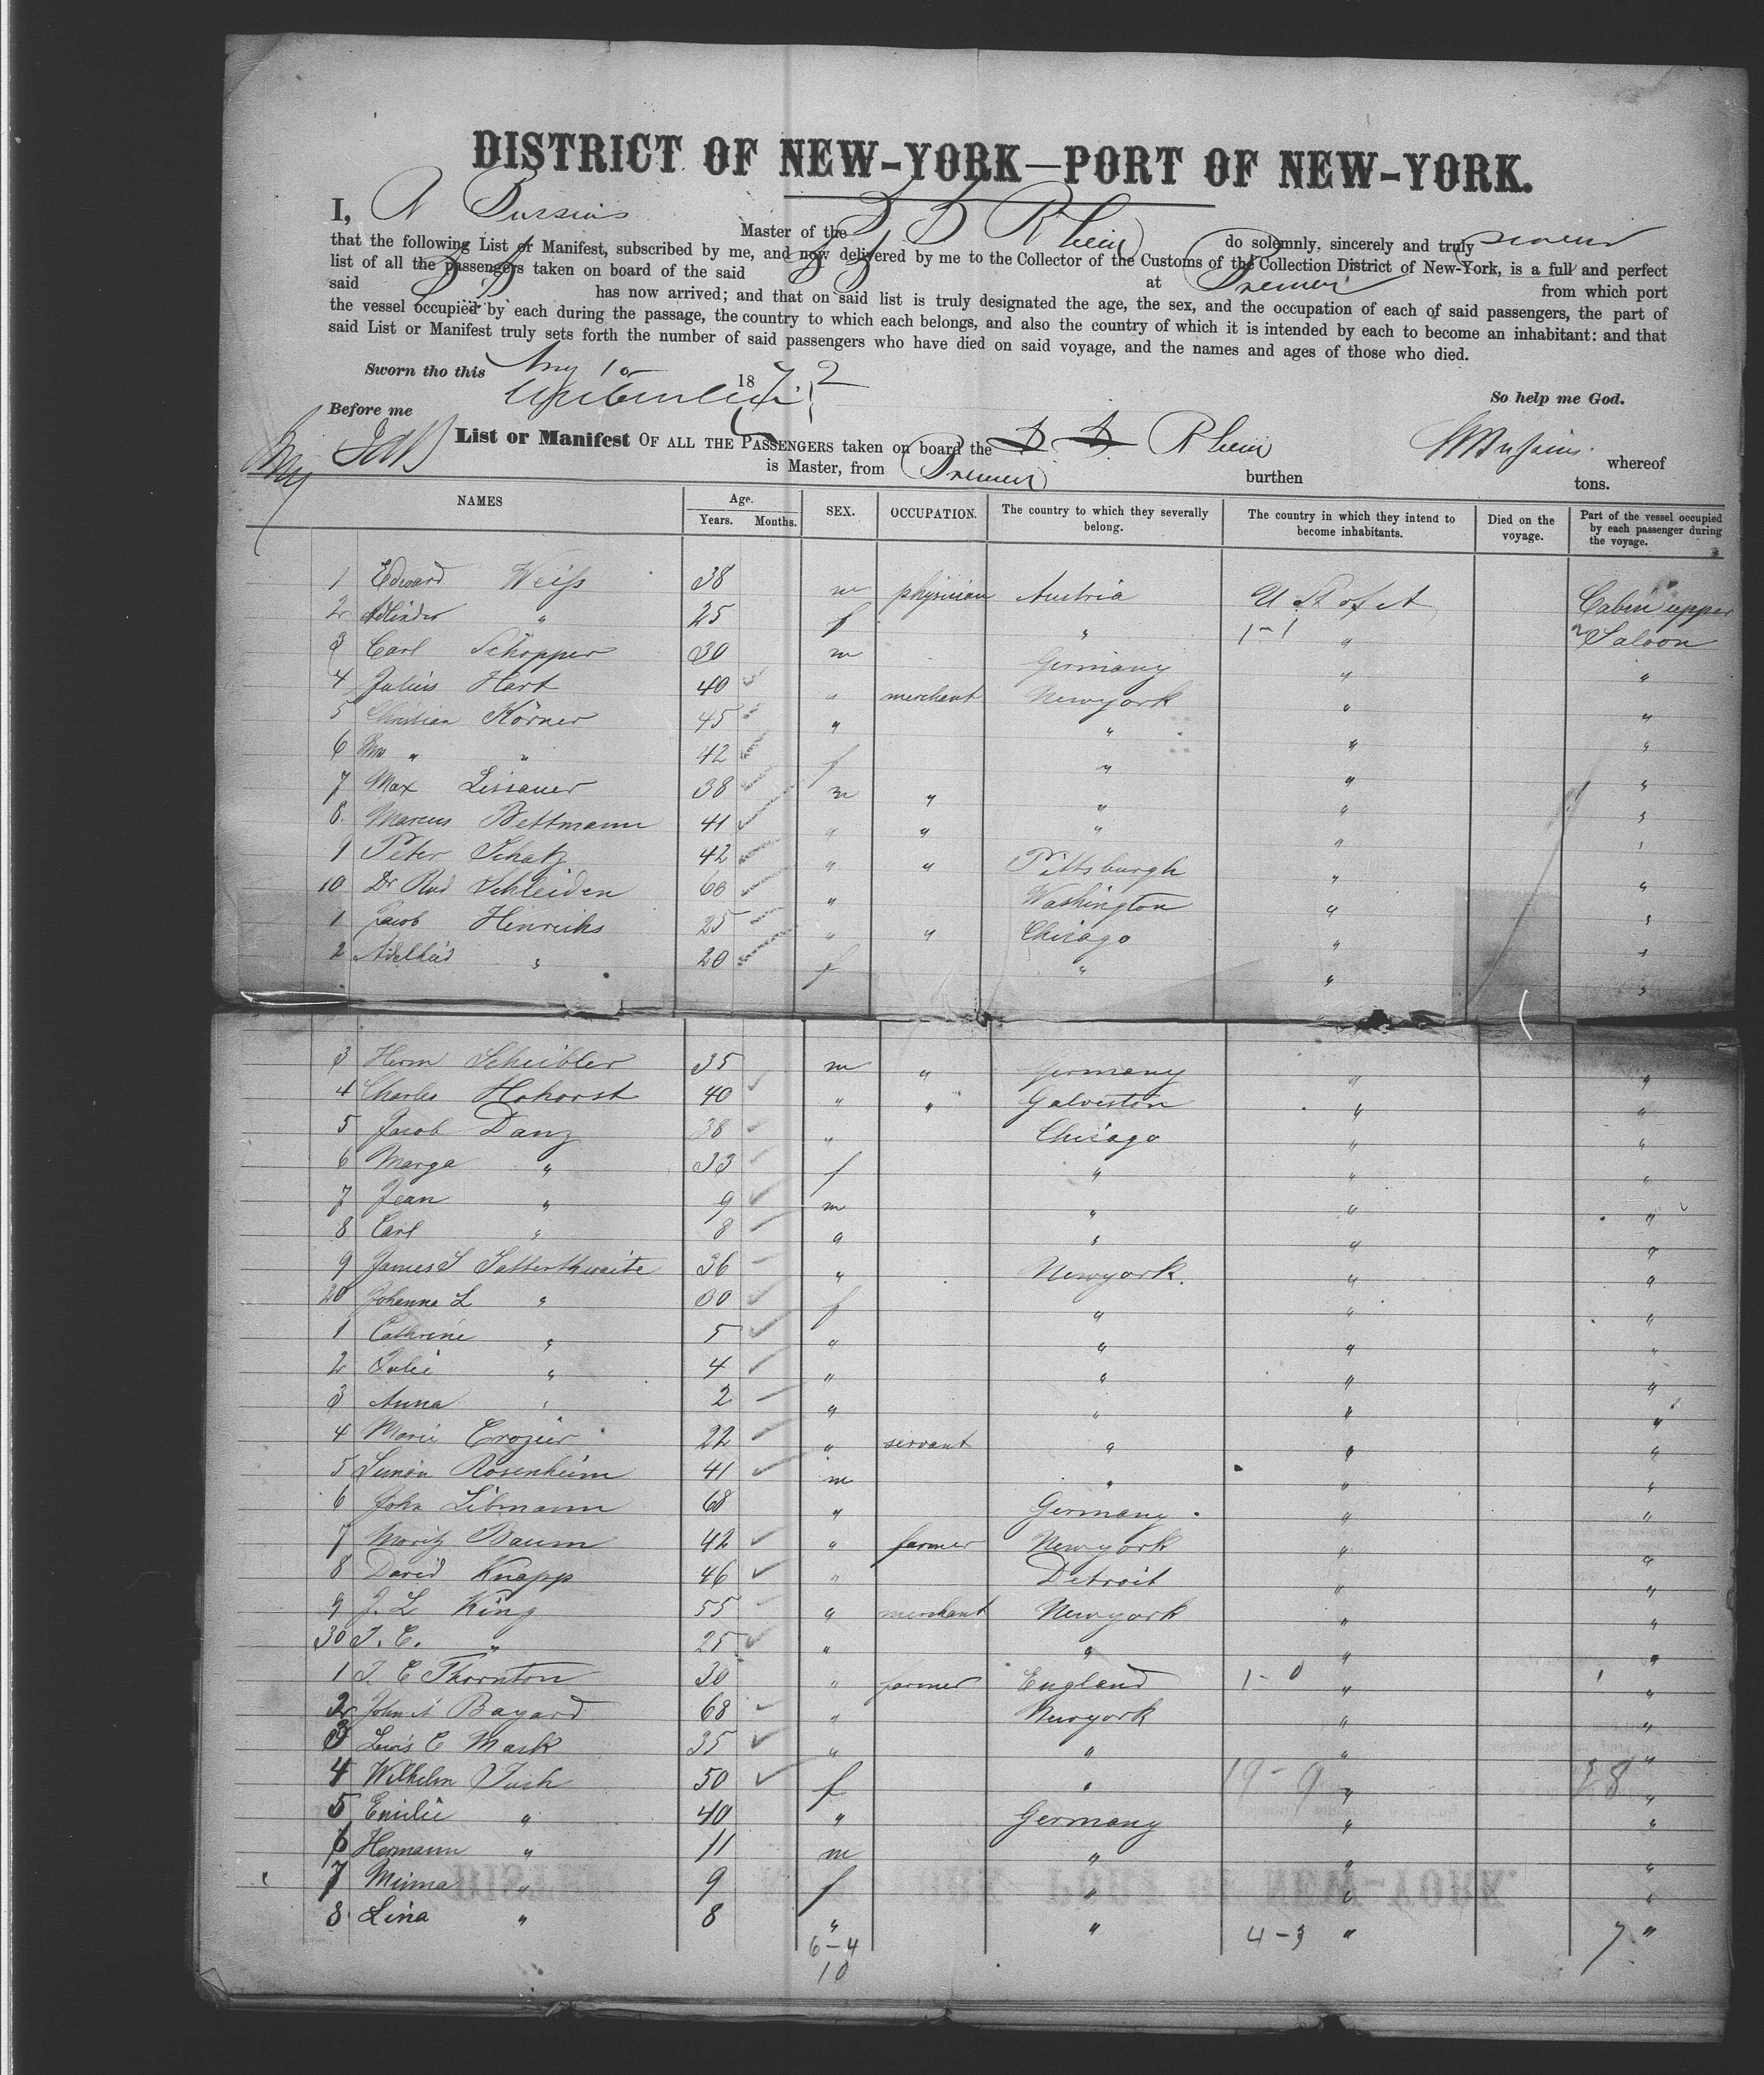 DISTRICT OF NEW-YORK—PORT OF NEW-YORK.
I, Master of the S S Rhein do solemnly, sincerely and truly swear
that the following List or Manifest, subscribed by me, and now delivered by me to the Collector of the Customs of the Collection District of New-York, is a full and perfect
list of all the passengers taken on board of the said S S at Bremen from which port
said S S has now arrived; and that on said list is truly designated the age, the sex, and the occupation of each of said passengers, the part of
the vessel occupied by each during the passage, the country to which each belongs, and also the country of which it is intended by each to become an inhabitant: and that
said List or Manifest truly sets forth the number of said passengers who have died on said voyage, and the names and ages of those who died.
Sworn tho this 1872 So help me God.
Before me
List or Manifest OF ALL THE PASSENGERS taken on board the S S Rhein whereof
is Master, from Bremen burthen tons.
NAMES Age. Years. Months. SEX. OCCUPATION. The country to which they severally belong. The country in which they intend to become inhabitants. Died on the voyage. Part of the vessel occupied by each passenger during the voyage.
1 Edward Weiss 38 m physician Austria U St of A Cabin upper
2 " 25 f " 1-1 " Saloon
3 Carl Schopper 30 m Germany " "
4 Julius Hart 40 " merchant Newyork " "
5 Christian Körner 45 " " " "
6 Mrs " " 42 f " " "
7 Max Lissauer 38 m " " " "
8 Marcus Bettmann 41 " " " " "
9 Peter Schatz 42 " " Pittsburgh " "
10 Dr Rud Schleiden 60 " Washington " "
1 Jacob Hinrichs 25 " " Chicago " "
2 Adelheid " 20 f " " "
3 Herm Scheibler 35 m " Germany " "
4 Charles Hohorst 40 " " Galveston " "
5 Jacob Danz 38 " Chicago " "
6 Marga " 33 f " " "
7 Jean " 9 m " " "
8 Carl " 8 " " " "
9 James S Satterthwaite 36 " Newyork. " "
20 Johanna L " 30 f " " "
1 Cathrine " 5 " " " "
2 Julie " 4 " " " "
3 Anna " 2 " " " "
4 Marie Crozier 22 " servant " " "
5 Simon Rosenheim 41 m " " "
6 John Libmann 68 " Germany " "
7 Moritz Baum 42 " farmer Newyork " "
8 David Knapp 46 " Detroit " "
9 J. L King 55 " merchant Newyork " "
30 J. C. " 25 " " " "
1 J. C Thornton 30 " farmer England 1-0 " "
2 John A Bayard 68 " Newyork " "
3 Lewis C Mark 35 " " " "
4 Wilhelm 50 f " 19-9 " 28 "
5 Emilie " 40 " Germany " "
6 Hermann " 11 m " " "
7 Minna " 9 f " " "
8 Lina " 8 " " 4-3 " 7 "
6-4
10